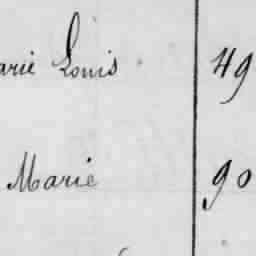 arie Louis 49
Marie 90